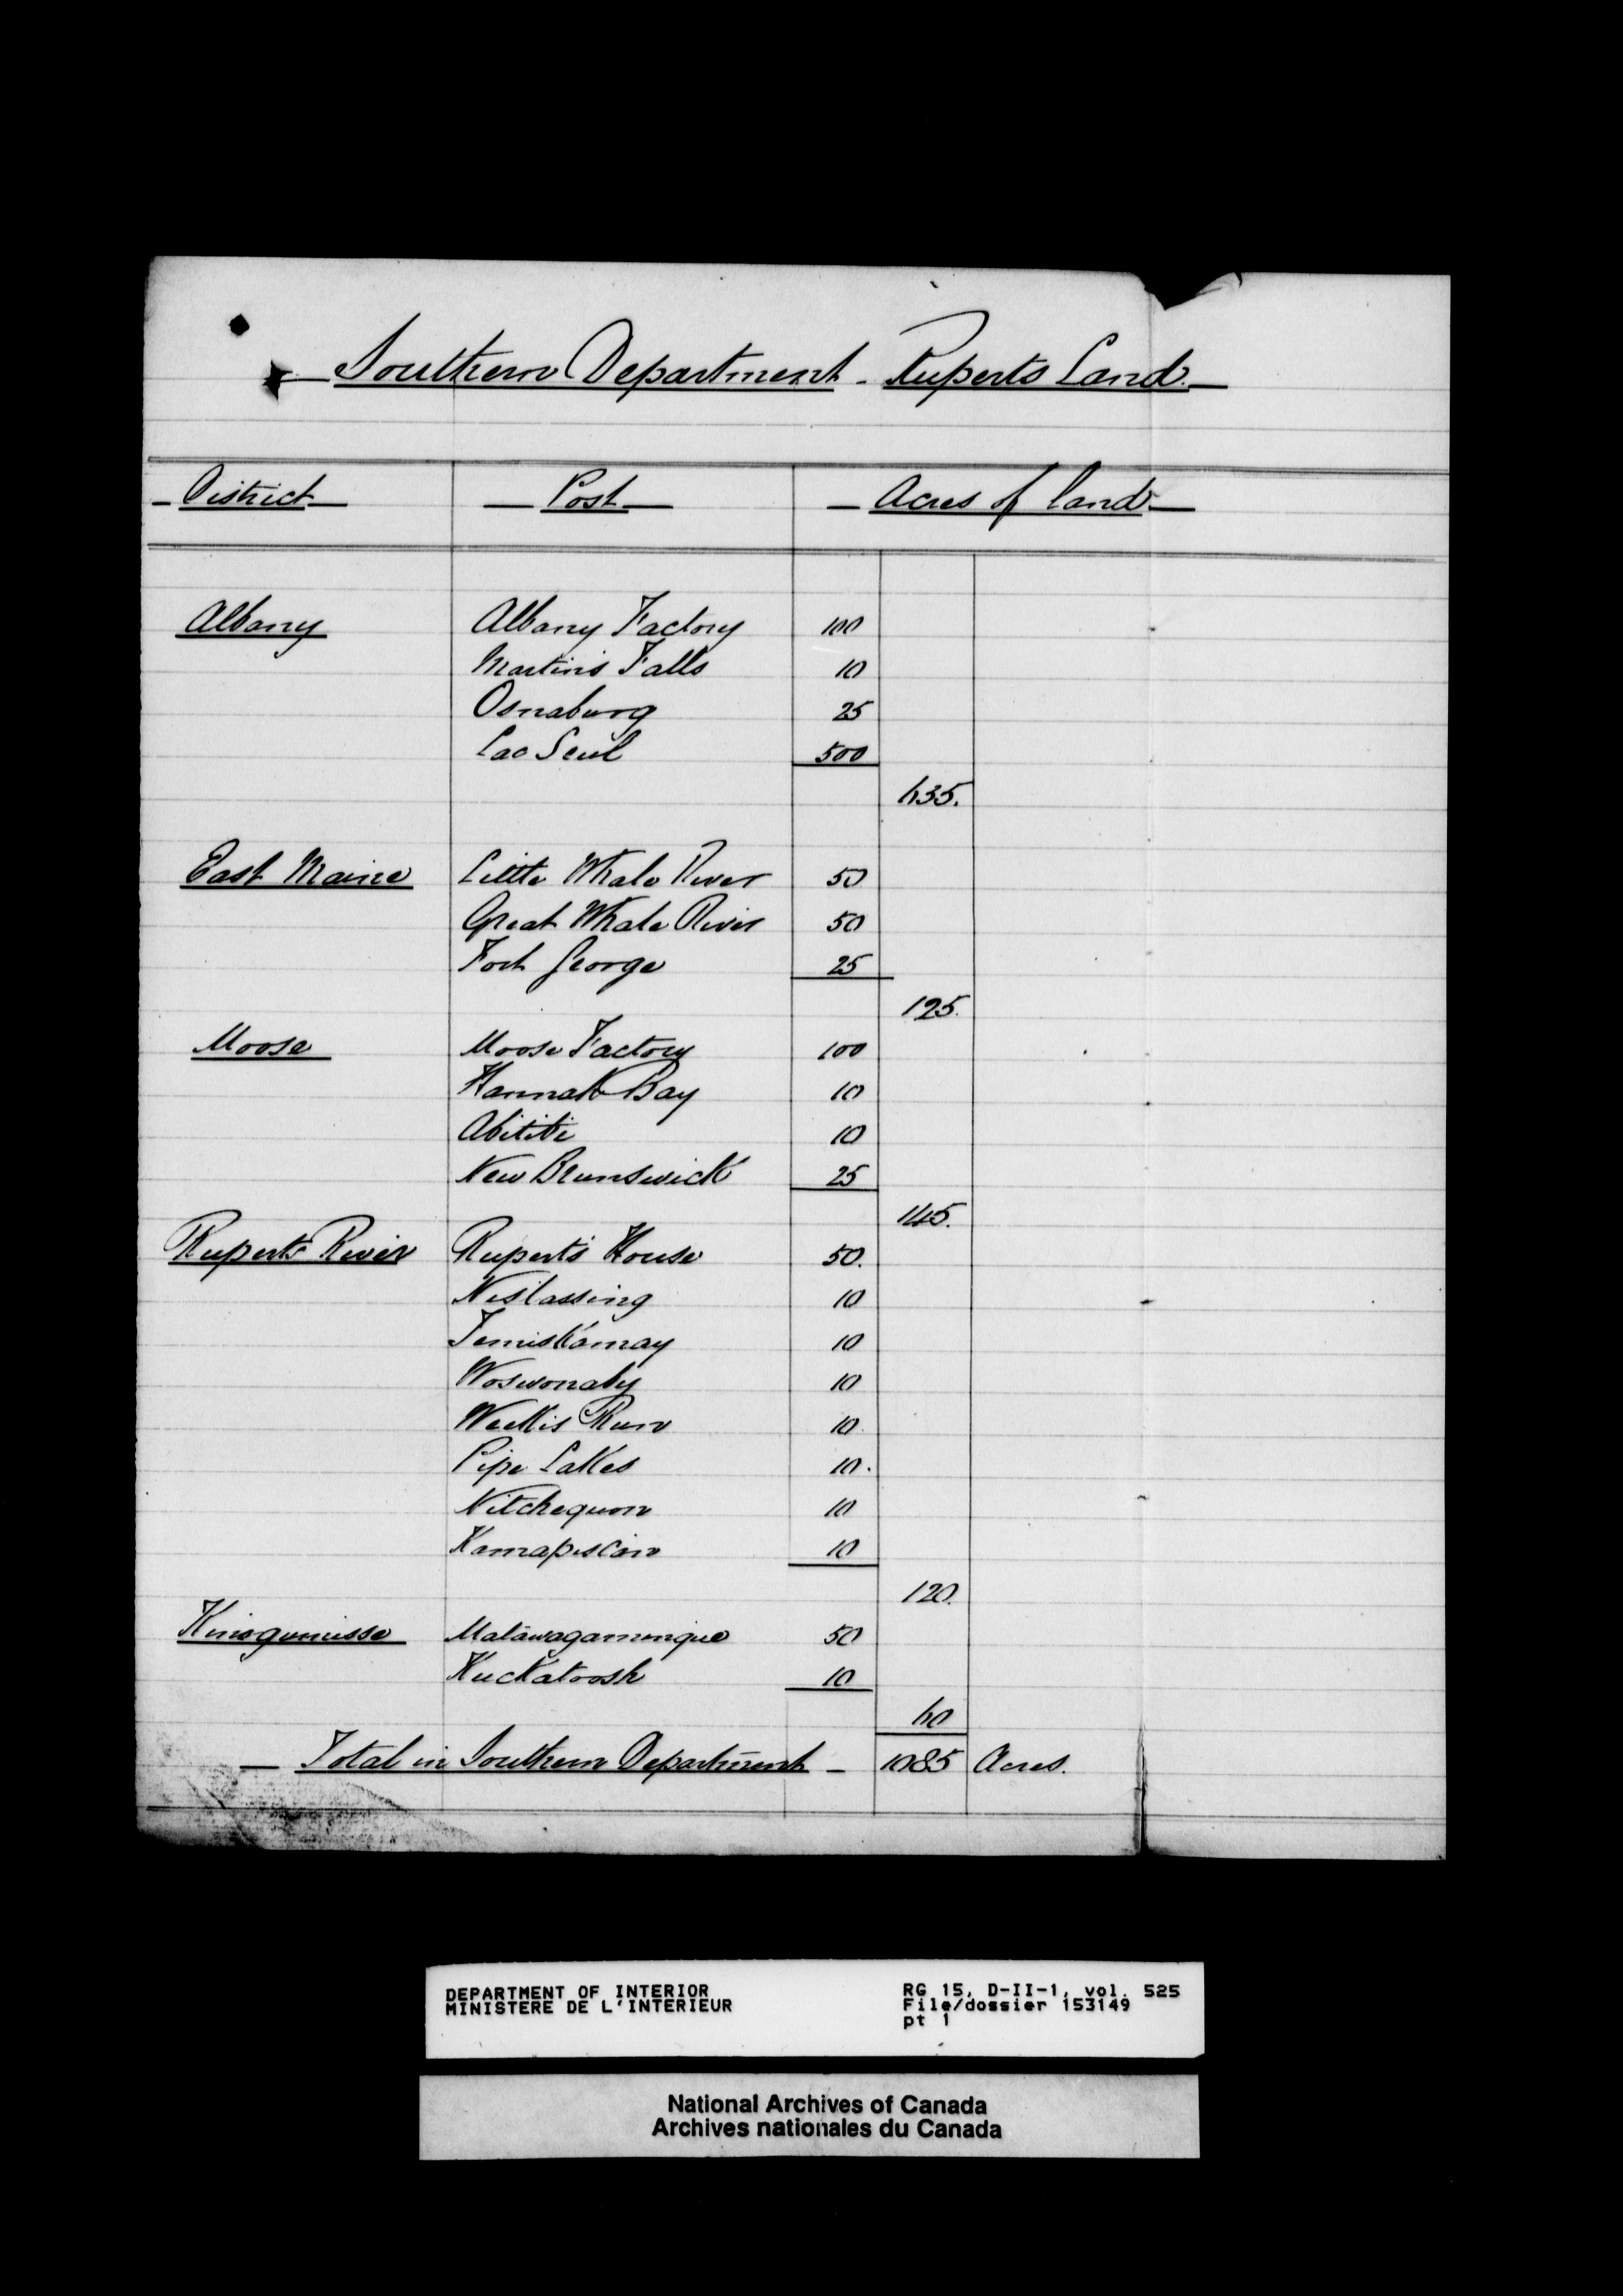 Southern Department - Ruperts Land
District Post Acres of land
Albany Albany Factory 100
Martin's Falls 10
Osnaburg 25
Lac Seul 500
635.
East Maine Little Whale River 50
Great Whale River 50
Fort George 25
125.
Moose Moose Factory 100
Hannah Bay 10
Abitibi 10
New Brunswick 25
145.
Rupert's River Rupert's House 50.
Mistassing 10
Temiskamay 10
Woswonaby 10
Meckis Run 10
Pipe Lakes 10.
Nitchequon 10
Kamapiscan 10
120.
Kinogumisse Matawagamingue 50
Kuckatoosh 10
60
Total in Southern Department - 1085 Acres.
DEPARTMENT OF INTERIOR
MINISTERE DE L'INTERIEUR
RG 15, D-II-1, vol. 525
File/dossier 153149
pt 1
National Archives of Canada
Archives nationales du Canada